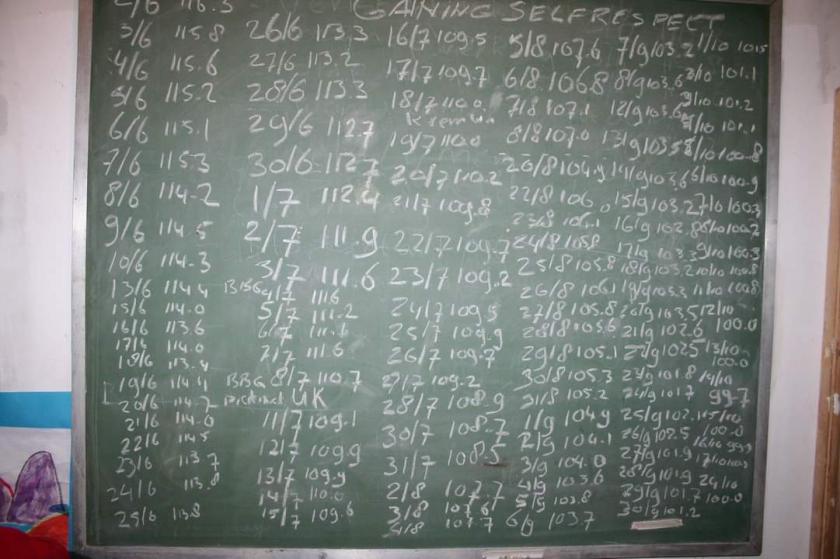 GAINING SELFRESPECT
2/6 116.3
3/6 115.8
4/6 115.6
5/6 115.2
6/6 115.1
7/6 115.3
8/6 114.2
9/6 114.5
10/6 114.3
13/6 114.4
15/6 114.0
16/6 113.6
17/6 114.0
18/6 113.4
19/6 114.4
20/6
21/6 114.0
22/6 114.5
23/6 113.7
24/6 113.8
25/6 113.8
26/6 113.3
27/6 113.2
28/6 113.3
29/6 112.7
30/6 112.7
1/7 112.4
2/7 111.9
3/7 111.6
BBG 4/7 111.6
5/7 111.2
6/7 111.1
7/7 111.6
BBG 8/7 110.7
UK
11/7 109.1
12/7 109.9
13/7 109.9
14/7 110.0
15/7 109.6
16/7 109.5
17/7 109.7
18/7 110.0
19/7 110.0
20/7 110.2
21/7 109.8
22/7 109.7
23/7 109.2
24/7 109.5
25/7 109.9
26/7 109.7
27/7 109.2
28/7 108.9
30/7 108.7
31/7 108.5
2/8 107.7
3/8 107.6
4/8 107.7
5/8 107.6
6/8 106.8
7/8 107.1
8/8 107.0
20/8 104.9
22/8 106.0
23/8 106.1
24/8 105.8
25/8 105.8
26/8 106.1
27/8 105.8
28/8 105.6
29/8 105.1
30/8 105.3
31/8 105.2
1/9 104.9
2/9 104.1
3/9 104.0
4/9 103.6
5/9 103.8
6/9 103.7
7/9 103.2
8/9 103.6
12/9 103.6
13/9 103.5
14/9 103.6
15/9 103.2
16/9 102.8
17/9 103.3
18/9 103.2
19/9 103.3
20/9 103.5
21/9 102.6
22/9 102.5
23/9 101.8
24/9 101.7
25/9 102.1
26/9 102.5
27/9 101.9
28/9 101.9
29/9 101.7
30/9 101.2
1/10 101.5
2/10 101.1
3/10 101.2
4/10 101.1
5/10 100.8
6/10 100.9
7/10 100.3
8/10 100.2
9/10 100.3
10/10 100.8
11/10 100.8
12/10 100.0
13/10 100.0
14/10 99.7
15/10 100.0
16/10 99.9
17/10
24/10 100.0